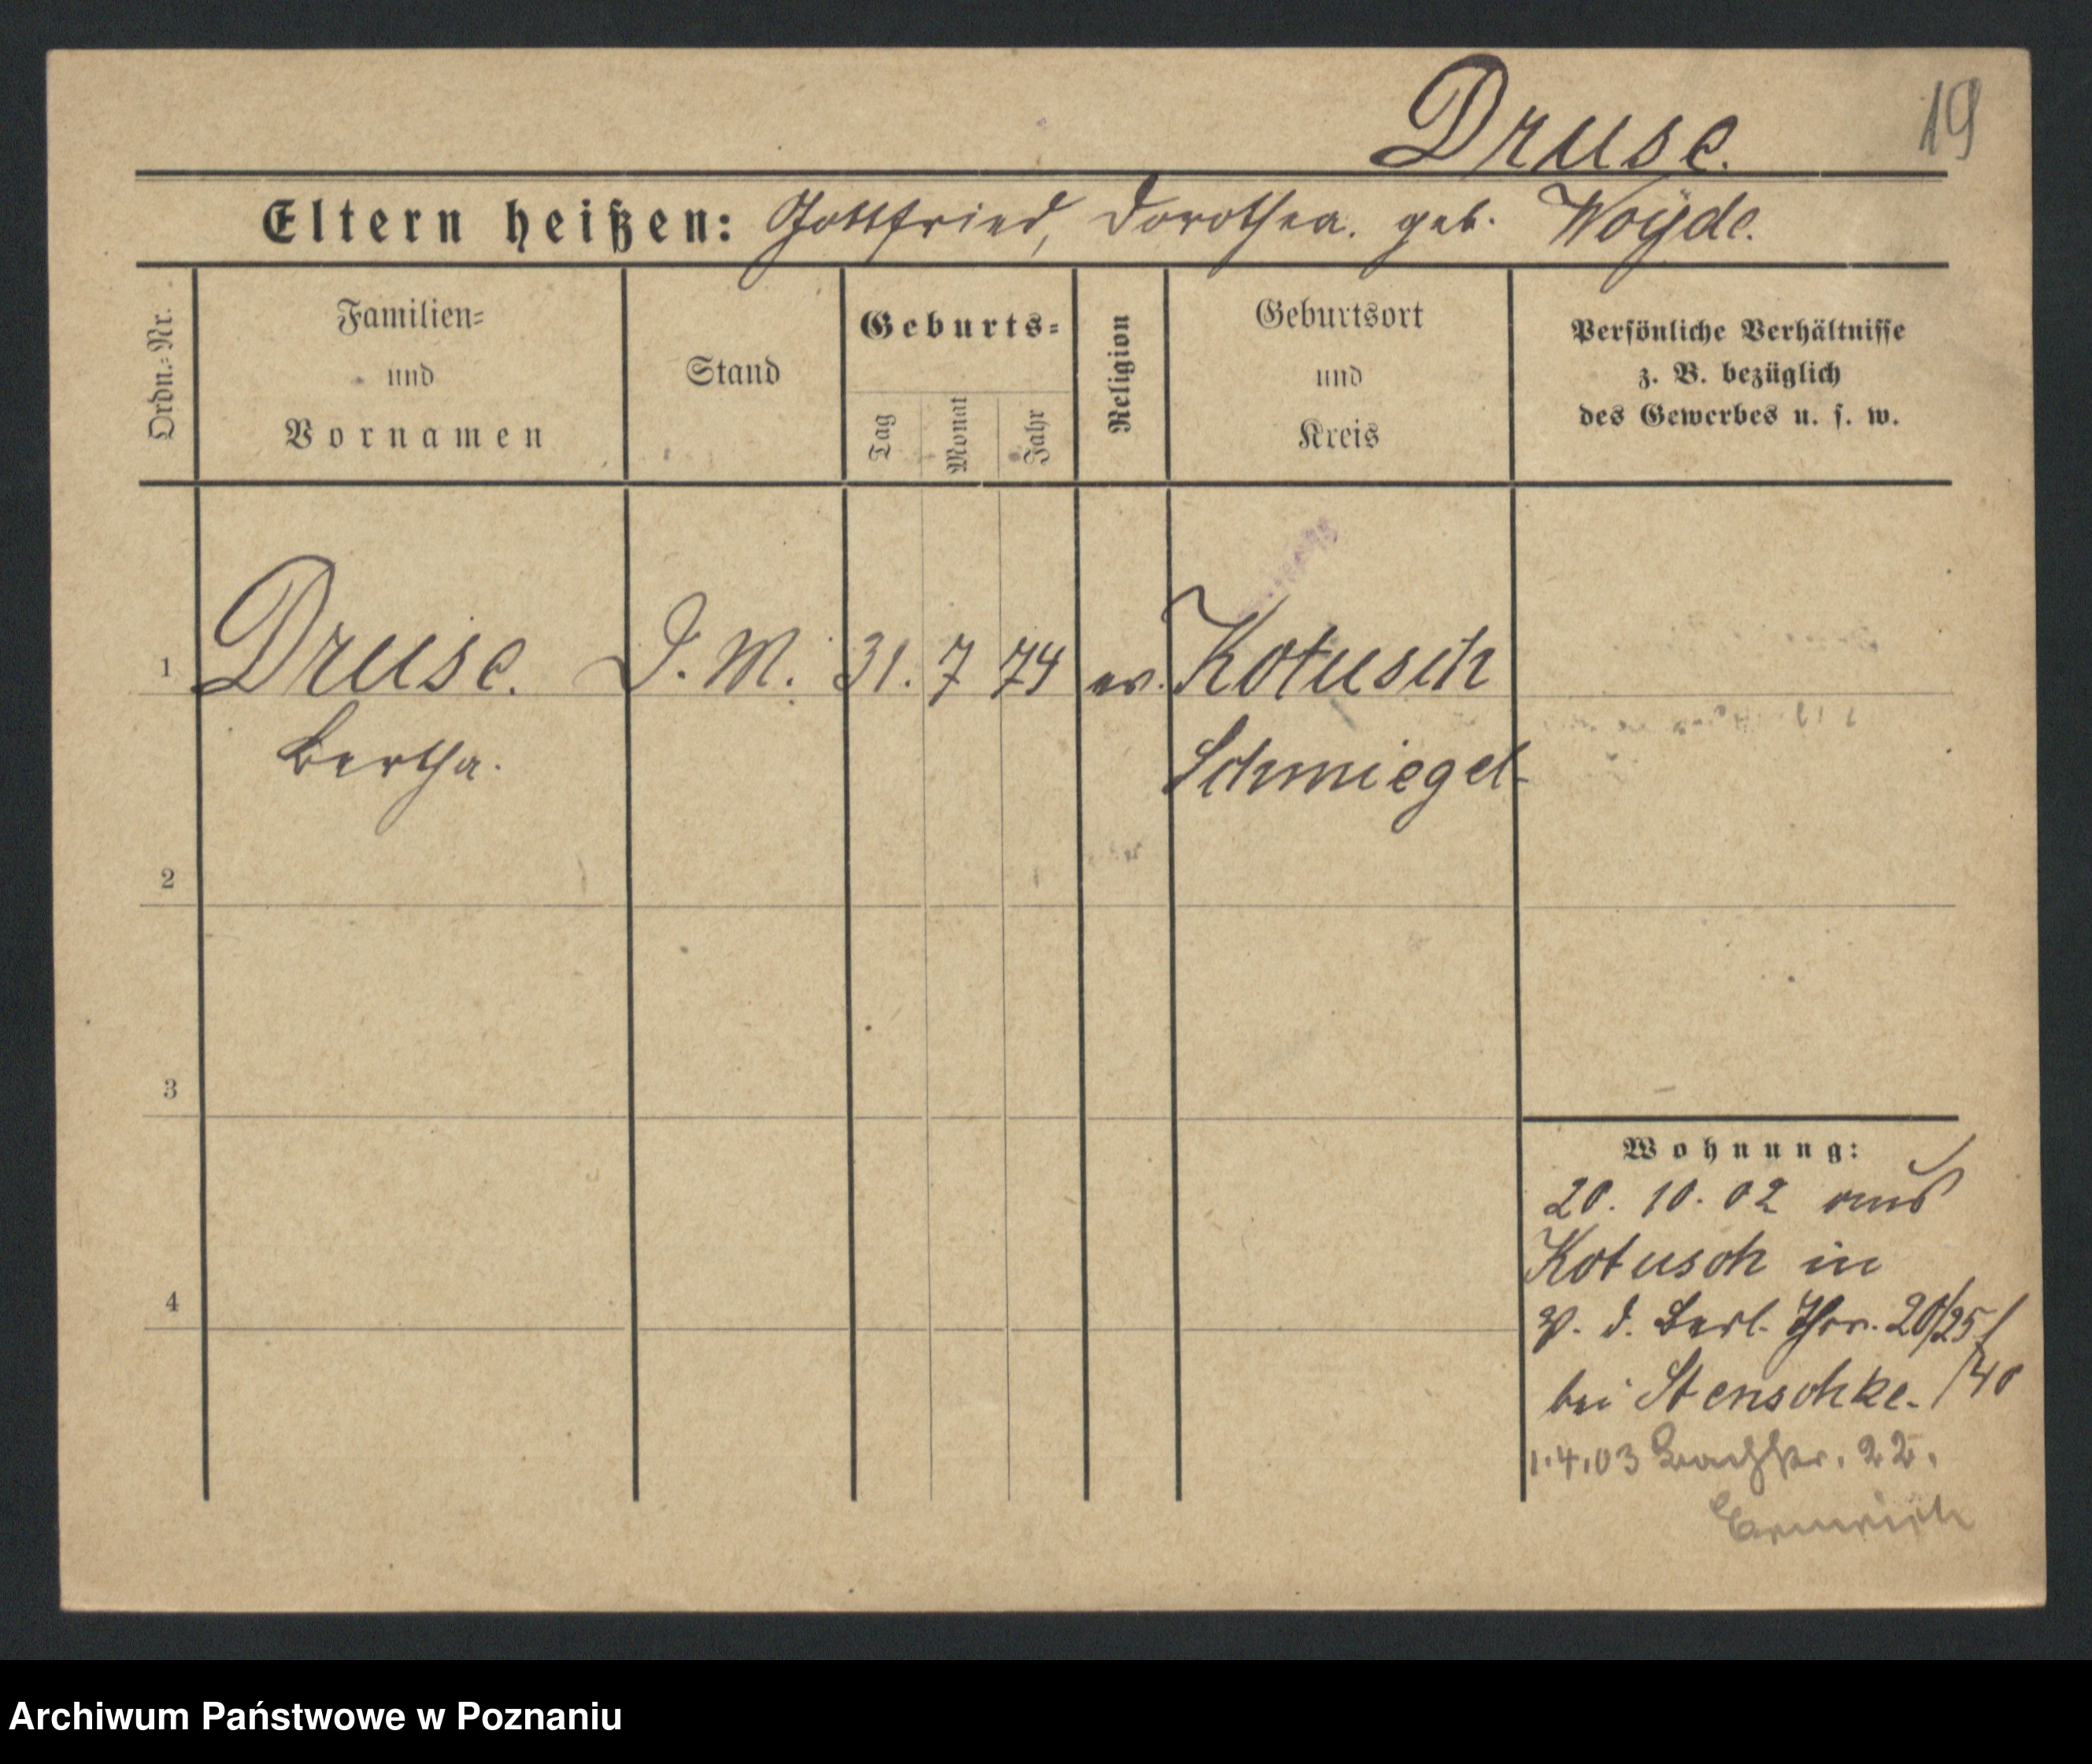 Druse.
19
Eltern heißen: Gottfried, Dorothea. geb. Woÿde.
Ordn.-Nr.
Familien-
und
Vornamen
Stand
Geburts-
Tag
Monat
Jahr
Religion
Geburtsort
und
Kreis
Persönliche Verhältnisse
z. B. bezüglich
des Gewerbes u. s. w.
1 Druse. D. M. 31. 7 74 ev. Kotusch
Bertha. Schmiegel
2
3
4
Wohnung:
20. 10. 02 aus
Kotusch in
v. d. Berl. Thor.
bei Stenschke. /40
1.4.03 22.
Archiwum Państwowe w Poznaniu